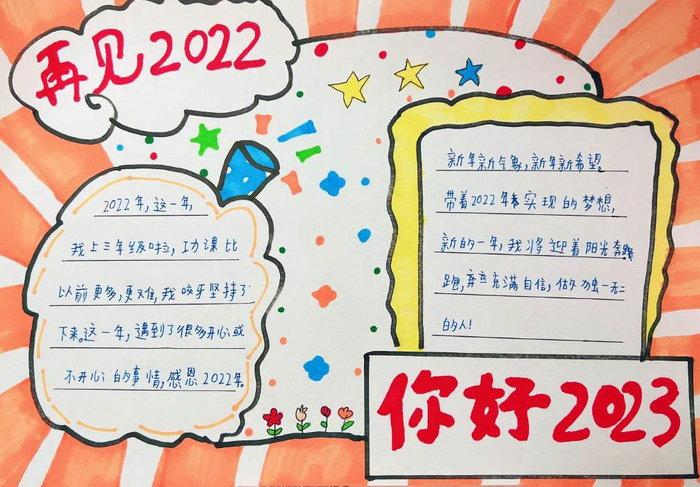 再见2022
2022年,这一年,
我上三年级啦,功课比
以前更多,更难,我咬牙坚持了
下来。这一年,遇到了很多开心或
不开心的事情,感恩2022年。
新年新气象,新年新希望。
带着2022年未实现的梦想,
新的一年,我将迎着阳光奔
跑,充满自信,做独一无二
的人!
你好2023